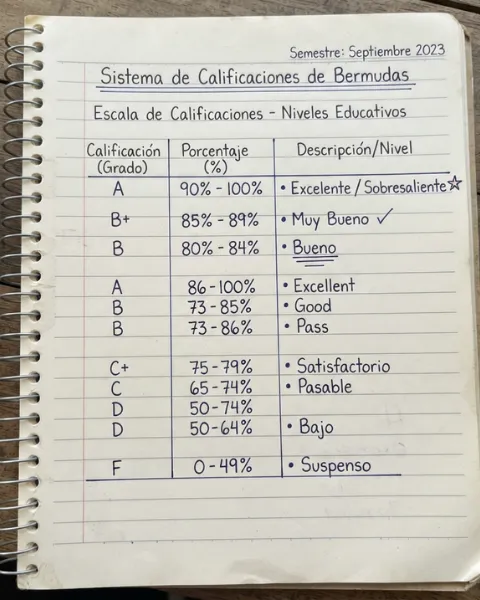 Semestre: Septiembre 2023
Sistema de Calificaciones de Bermudas
Escala de Calificaciones - Niveles Educativos
Calificación (Grado) Porcentaje (%) Descripción/Nivel
A 90% - 100% • Excelente / Sobresaliente ☆
B+ 85% - 89% • Muy Bueno ✓
B 80% - 84% • Bueno
A 86 - 100% • Excellent
B 73 - 85% • Good
B 73 - 86% • Pass
C+ 75 - 79% • Satisfactorio
C 65 - 74% • Pasable
D 50 - 74%
D 50 - 64% • Bajo
F 0 - 49% • Suspenso